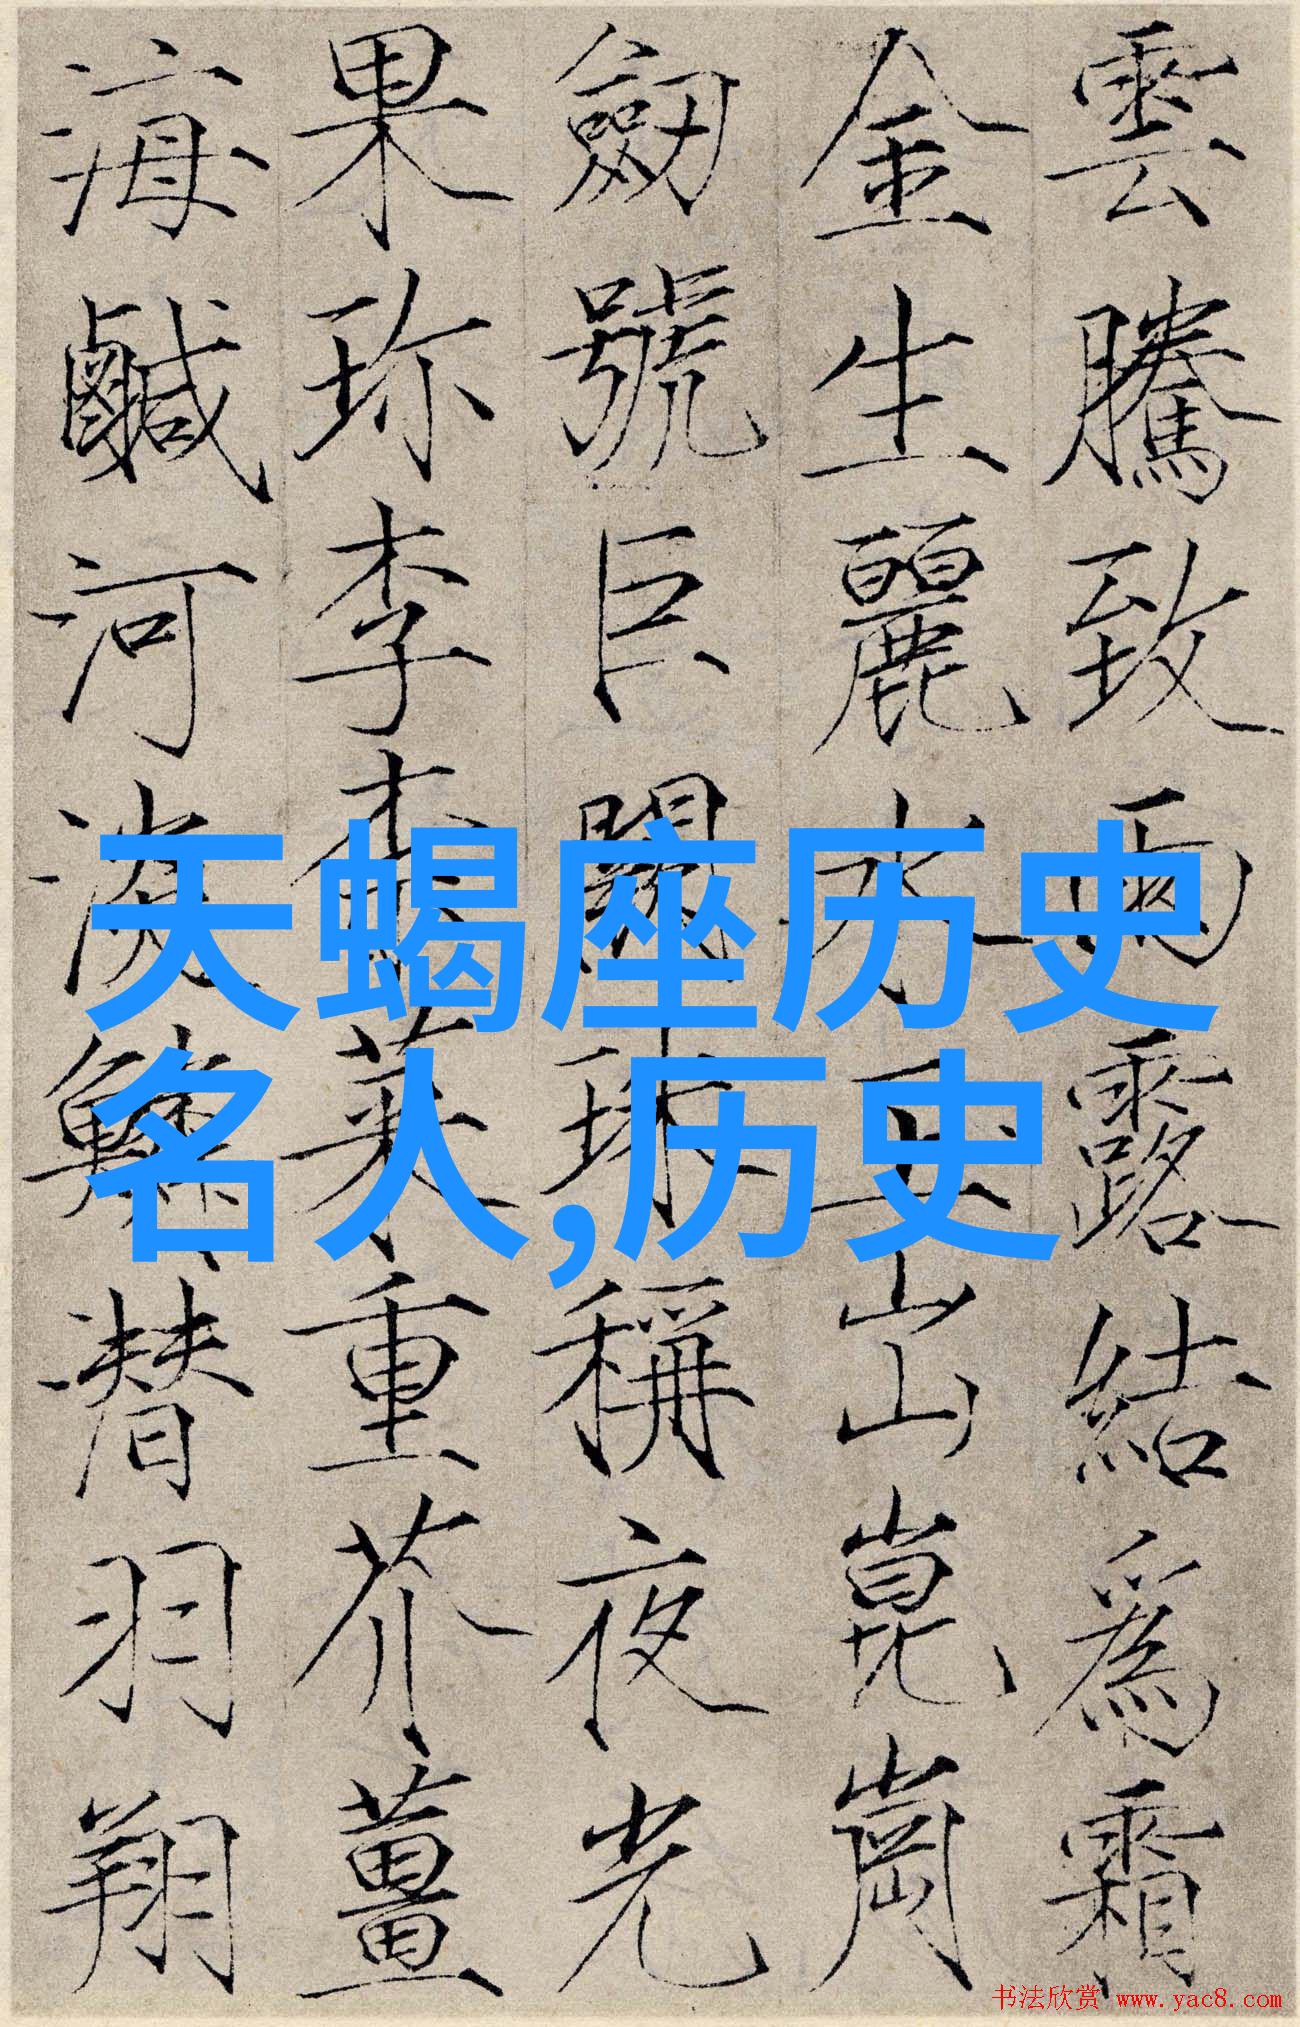 雲騰致雨露結爲霜
金生麗水玉出崑崗
劒號巨闕珠稱夜光
果珎李柰菜重芥薑
海鹹河淡鱗潜羽翔
天蝎座历史
名人,历史
书法欣赏 www.yac8.com